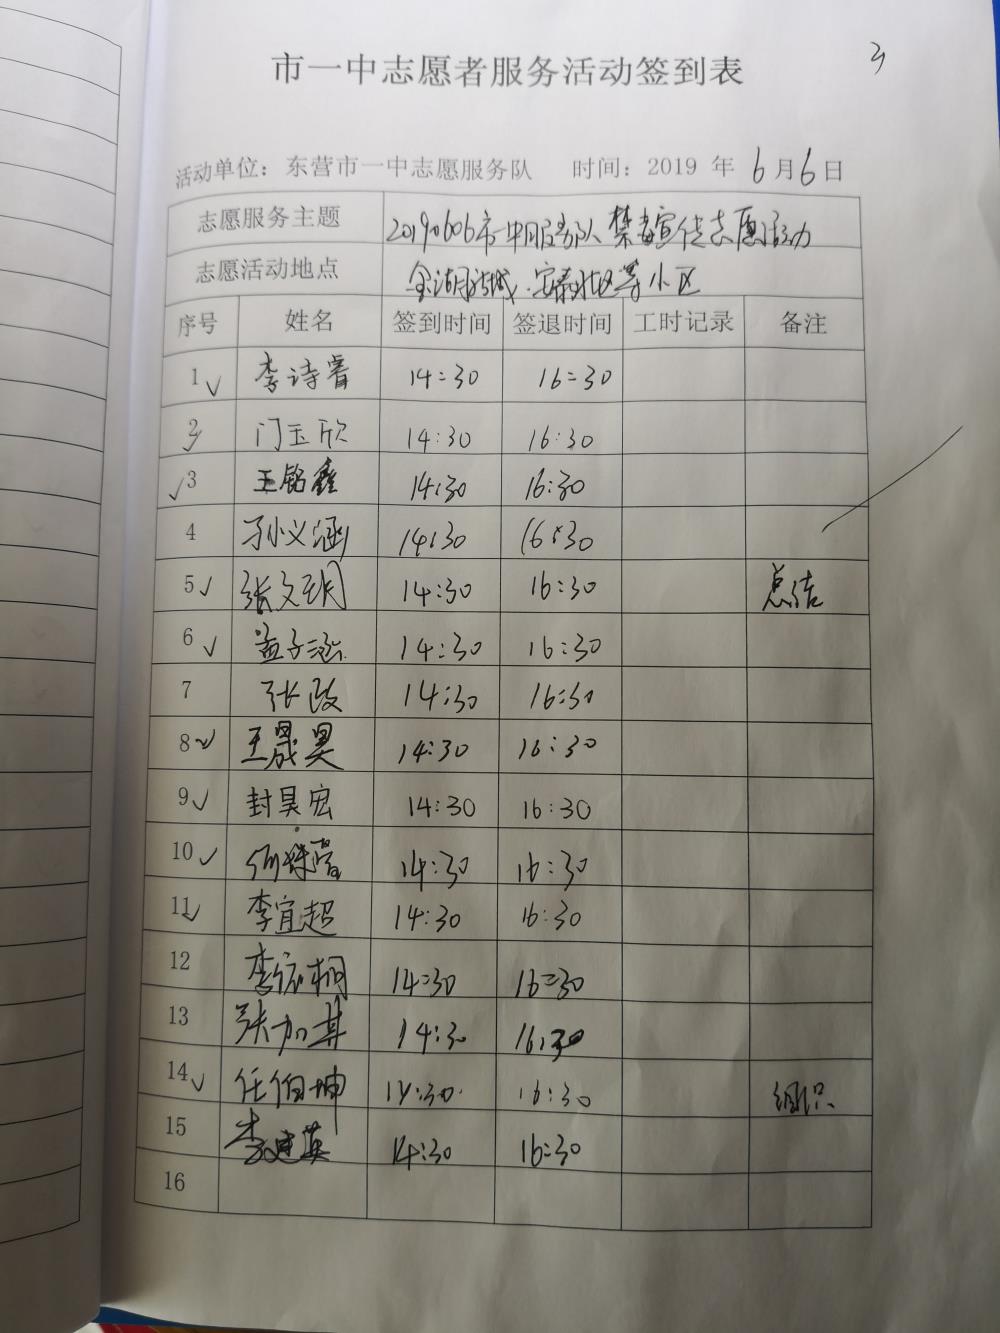 3
市一中志愿者服务活动签到表
活动单位：东营市一中志愿服务队 时间：2019 年 6月6日
志愿服务主题 20190606市一中服务队 禁毒宣传志愿活动
志愿活动地点 金湖 城.安泰社区等小区
序号 姓名 签到时间 签退时间 工时记录 备注
1✓ 李诗睿 14:30 16:30
2✓ 门玉欣 14:30 16:30
✓3 王铭鑫 14:30 16:30
4 孙义涵 14:30 16:30
5✓ 张文玥 14:30 16:30 总结
6✓ 孟子涵 14:30 16:30
7 张政 14:30 16:30
8✓ 王晟昊 14:30 16:30
9✓ 封昊宏 14:30 16:30
10✓ 14:30 16:30
11✓ 李宜超 14:30 16:30
12 李依桐 14:30 16:30
13 张加其 14:30 16:30
14✓ 任伯坤 14:30 16:30 组织
15 李建英 14:30 16:30
16